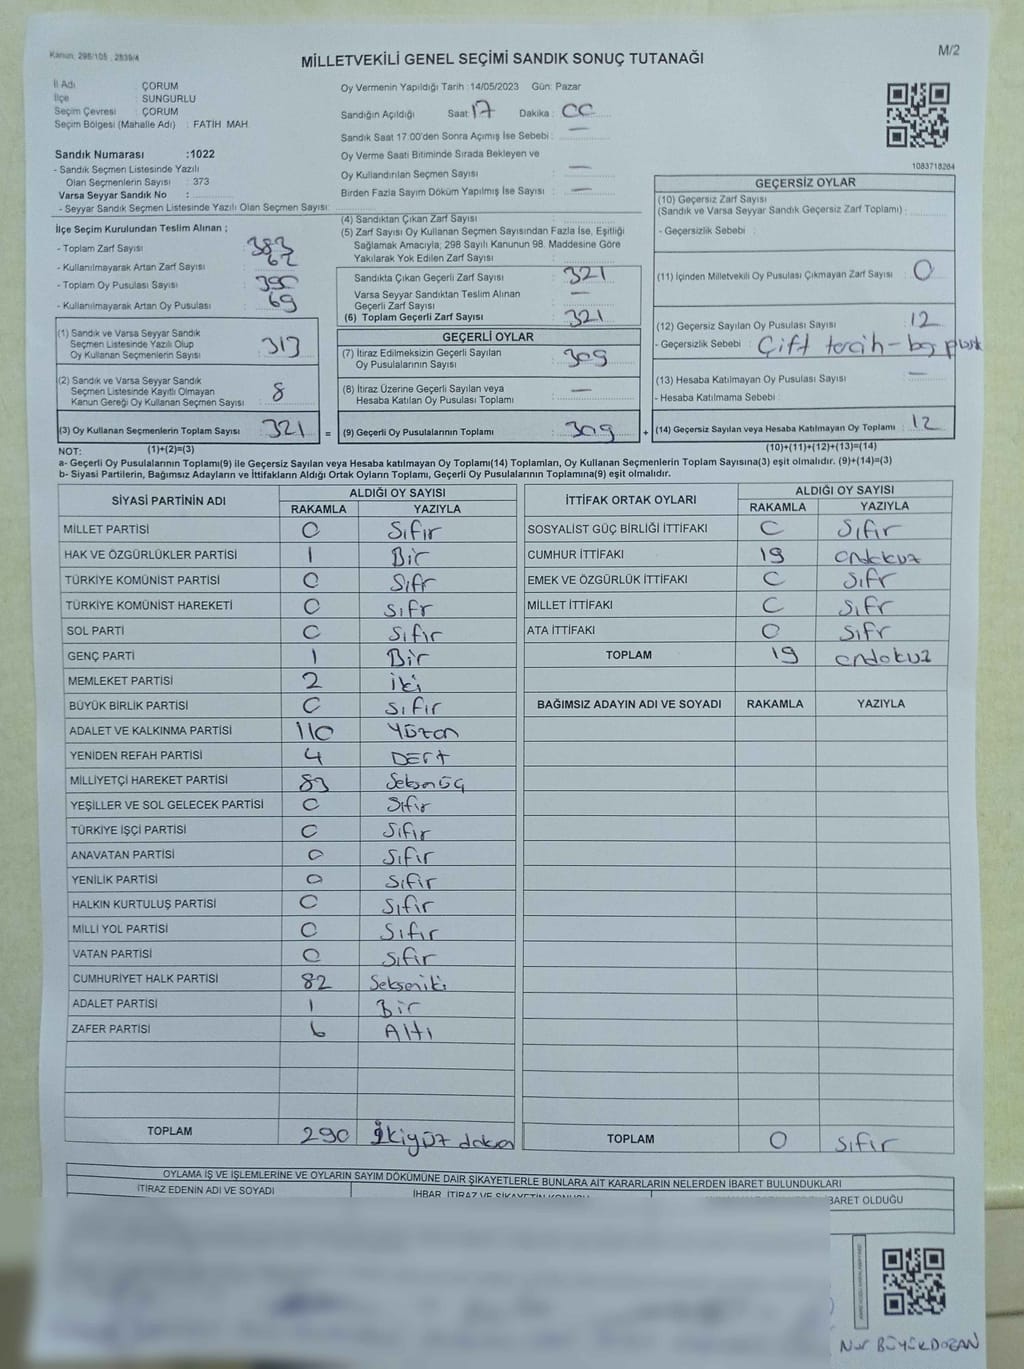 Kanun, 298/105 , 2839/4
MİLLETVEKİLİ GENEL SEÇİMİ SANDIK SONUÇ TUTANAĞI
M/2
İl Adı : ÇORUM
İlçe : SUNGURLU
Seçim Çevresi : ÇORUM
Seçim Bölgesi (Mahalle Adı) : FATİH MAH.
Oy Vermenin Yapıldığı Tarih :14/05/2023 Gün: Pazar
Sandığın Açıldığı Saat: 17 Dakika : 00
Sandık Saat 17.00'den Sonra Açımış İse Sebebi : —
Oy Verme Saati Bitiminde Sırada Bekleyen ve
Oy Kullandırılan Seçmen Sayısı : —
Birden Fazla Sayım Döküm Yapılmış İse Sayısı : —
1083718264
Sandık Numarası :1022
- Sandık Seçmen Listesinde Yazılı
Olan Seçmenlerin Sayısı : 373
Varsa Seyyar Sandık No :
- Seyyar Sandık Seçmen Listesinde Yazılı Olan Seçmen Sayısı:
İlçe Seçim Kurulundan Teslim Alınan ;
- Toplam Zarf Sayısı : 383
- Kullanılmayarak Artan Zarf Sayısı : 62
- Toplam Oy Pusulası Sayısı : 390
- Kullanılmayarak Artan Oy Pusulası : 69
(1) Sandık ve Varsa Seyyar Sandık
Seçmen Listesinde Yazılı Olup
Oy Kullanan Seçmenlerin Sayısı : 313
(2) Sandık ve Varsa Seyyar Sandık
Seçmen Listesinde Kayıtlı Olmayan
Kanun Gereği Oy Kullanan Seçmen Sayısı : 8
(3) Oy Kullanan Seçmenlerin Toplam Sayısı : 321
(4) Sandıktan Çıkan Zarf Sayısı :
(5) Zarf Sayısı Oy Kullanan Seçmen Sayısından Fazla İse, Eşitliği
Sağlamak Amacıyla; 298 Sayılı Kanunun 98. Maddesine Göre
Yakılarak Yok Edilen Zarf Sayısı :
Sandıkta Çıkan Geçerli Zarf Sayısı : 321
Varsa Seyyar Sandıktan Teslim Alınan
Geçerli Zarf Sayısı : —
(6) Toplam Geçerli Zarf Sayısı : 321
GEÇERLİ OYLAR
(7) İtiraz Edilmeksizin Geçerli Sayılan
Oy Pusulalarının Sayısı : 309
(8) İtiraz Üzerine Geçerli Sayılan veya
Hesaba Katılan Oy Pusulası Toplamı : —
= (9) Geçerli Oy Pusulalarının Toplamı : 309
GEÇERSİZ OYLAR
(10) Geçersiz Zarf Sayısı
(Sandık ve Varsa Seyyar Sandık Geçersiz Zarf Toplamı) :
- Geçersizlik Sebebi :
(11) İçinden Milletvekili Oy Pusulası Çıkmayan Zarf Sayısı : 0
(12) Geçersiz Sayılan Oy Pusulası Sayısı : 12
- Geçersizlik Sebebi : Çift tercih - boş
(13) Hesaba Katılmayan Oy Pusulası Sayısı : —
- Hesaba Katılmama Sebebi :
+ (14) Geçersiz Sayılan veya Hesaba Katılmayan Oy Toplamı : 12
NOT: (1)+(2)=(3) (10)+(11)+(12)+(13)=(14)
a- Geçerli Oy Pusulalarının Toplamı(9) ile Geçersiz Sayılan veya Hesaba katılmayan Oy Toplamı(14) Toplamları, Oy Kullanan Seçmenlerin Toplam Sayısına(3) eşit olmalıdır. (9)+(14)=(3)
b- Siyasi Partilerin, Bağımsız Adayların ve İttifakların Aldığı Ortak Oyların Toplamı, Geçerli Oy Pusulalarının Toplamına(9) eşit olmalıdır.
SİYASİ PARTİNİN ADI ALDIĞI OY SAYISI
RAKAMLA YAZIYLA
MİLLET PARTİSİ 0 Sıfır
HAK VE ÖZGÜRLÜKLER PARTİSİ 1 Bir
TÜRKİYE KOMÜNİST PARTİSİ 0 Sıfr
TÜRKİYE KOMÜNİST HAREKETİ 0 Sıfr
SOL PARTİ 0 Sıfır
GENÇ PARTİ 1 Bir
MEMLEKET PARTİSİ 2 iki
BÜYÜK BİRLİK PARTİSİ 0 Sıfır
ADALET VE KALKINMA PARTİSİ 110 Yüzon
YENİDEN REFAH PARTİSİ 4 DÖRt
MİLLİYETÇİ HAREKET PARTİSİ 83 Seksenüç
YEŞİLLER VE SOL GELECEK PARTİSİ 0 Sıfır
TÜRKİYE İŞÇİ PARTİSİ 0 Sıfır
ANAVATAN PARTİSİ 0 Sıfır
YENİLİK PARTİSİ 0 Sıfır
HALKIN KURTULUŞ PARTİSİ 0 Sıfır
MİLLİ YOL PARTİSİ 0 Sıfır
VATAN PARTİSİ 0 Sıfır
CUMHURİYET HALK PARTİSİ 82 Sekseniki
ADALET PARTİSİ 1 Bir
ZAFER PARTİSİ 6 Altı
TOPLAM 290 ikiyüz doksan
İTTİFAK ORTAK OYLARI ALDIĞI OY SAYISI
RAKAMLA YAZIYLA
SOSYALİST GÜÇ BİRLİĞİ İTTİFAKI 0 Sıfır
CUMHUR İTTİFAKI 19 ondokuz
EMEK VE ÖZGÜRLÜK İTTİFAKI 0 Sıfr
MİLLET İTTİFAKI 0 Sıfr
ATA İTTİFAKI 0 Sıfr
TOPLAM 19 ondokuz
BAĞIMSIZ ADAYIN ADI VE SOYADI RAKAMLA YAZIYLA
TOPLAM 0 Sıfır
OYLAMA İŞ VE İŞLEMLERİNE VE OYLARIN SAYIM DÖKÜMÜNE DAİR ŞİKAYETLERLE BUNLARA AİT KARARLARIN NELERDEN İBARET BULUNDUKLARI
İTİRAZ EDENİN ADI VE SOYADI İHBAR, İTİRAZ VE ŞİKAYETİN KONUSU İBARET OLDUĞU
Nur BÜYÜKDOĞAN